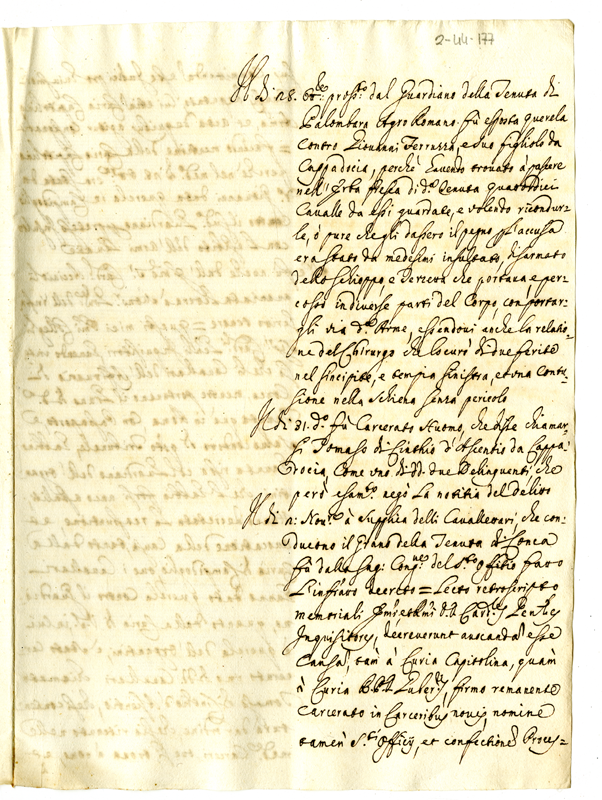 2-44-177
Il dì 28. 8bre pross.o dal Guardiano della Tenuta di
Palombara Agro Romano fù esposta querela
contro Giovanni Terrazza, e due figlioli da
Cappadocia, perche havendo trovato à pascere
nell'Erba stessa di d.a Tenuta quattordici
Cavalle da essi guardate, e volendo ricondur=
le, ò pure che gli dassero il pegno p l'accusa
era stato da medesimi insultato, disarmato
dello schioppo e Terzetta che portava, e per=
cosso in diverse parti del Corpo, con portar=
gli via d.e Arme, essendovi anche la relatio=
ne del Chirurgo che lo curò di due ferite
nel sincipite, e tempia sinistra, et una Contu=
sione nella schiena senza pericolo
Il dì 31. d.o fù Carcerato Huomo, che disse chiamar=
si Tomaso di Cinthio d'Ascentio da Cappa=
docia, Come uno di dd. due Delinquenti, che
però esam.to negò la notitia del delitto
Il dì 2. Nov.re à supplica delli Cavallereari, che con=
ducono il Grano della Tenuta di Conca
fù dalla Sag: Cong.ne del S.to Offitio fatto
l'infra.o decreto = Lecto retroscripto
memoriali Emi et Rmi DD. Card.les
Inquisitores, decreverunt avocandã esse
Causã, tam à Curia Capitolina, quam
à Curia firmo remanente
Carcerato in Carceribus novis nomine
tamen S.ti Officij, et confectione Proces=